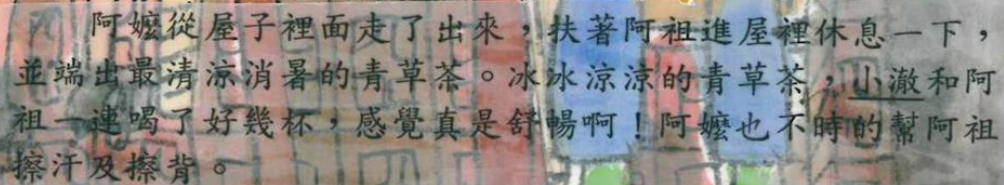 阿嬤從屋子裡面走了出來，扶著阿祖進屋裡休息一下，
並端出最清涼消暑的青草茶。冰冰涼涼的青草茶，小澈和阿
祖一連喝了好幾杯，感覺真是舒暢啊！阿嬤也不時的幫阿祖
擦汗及擦背。